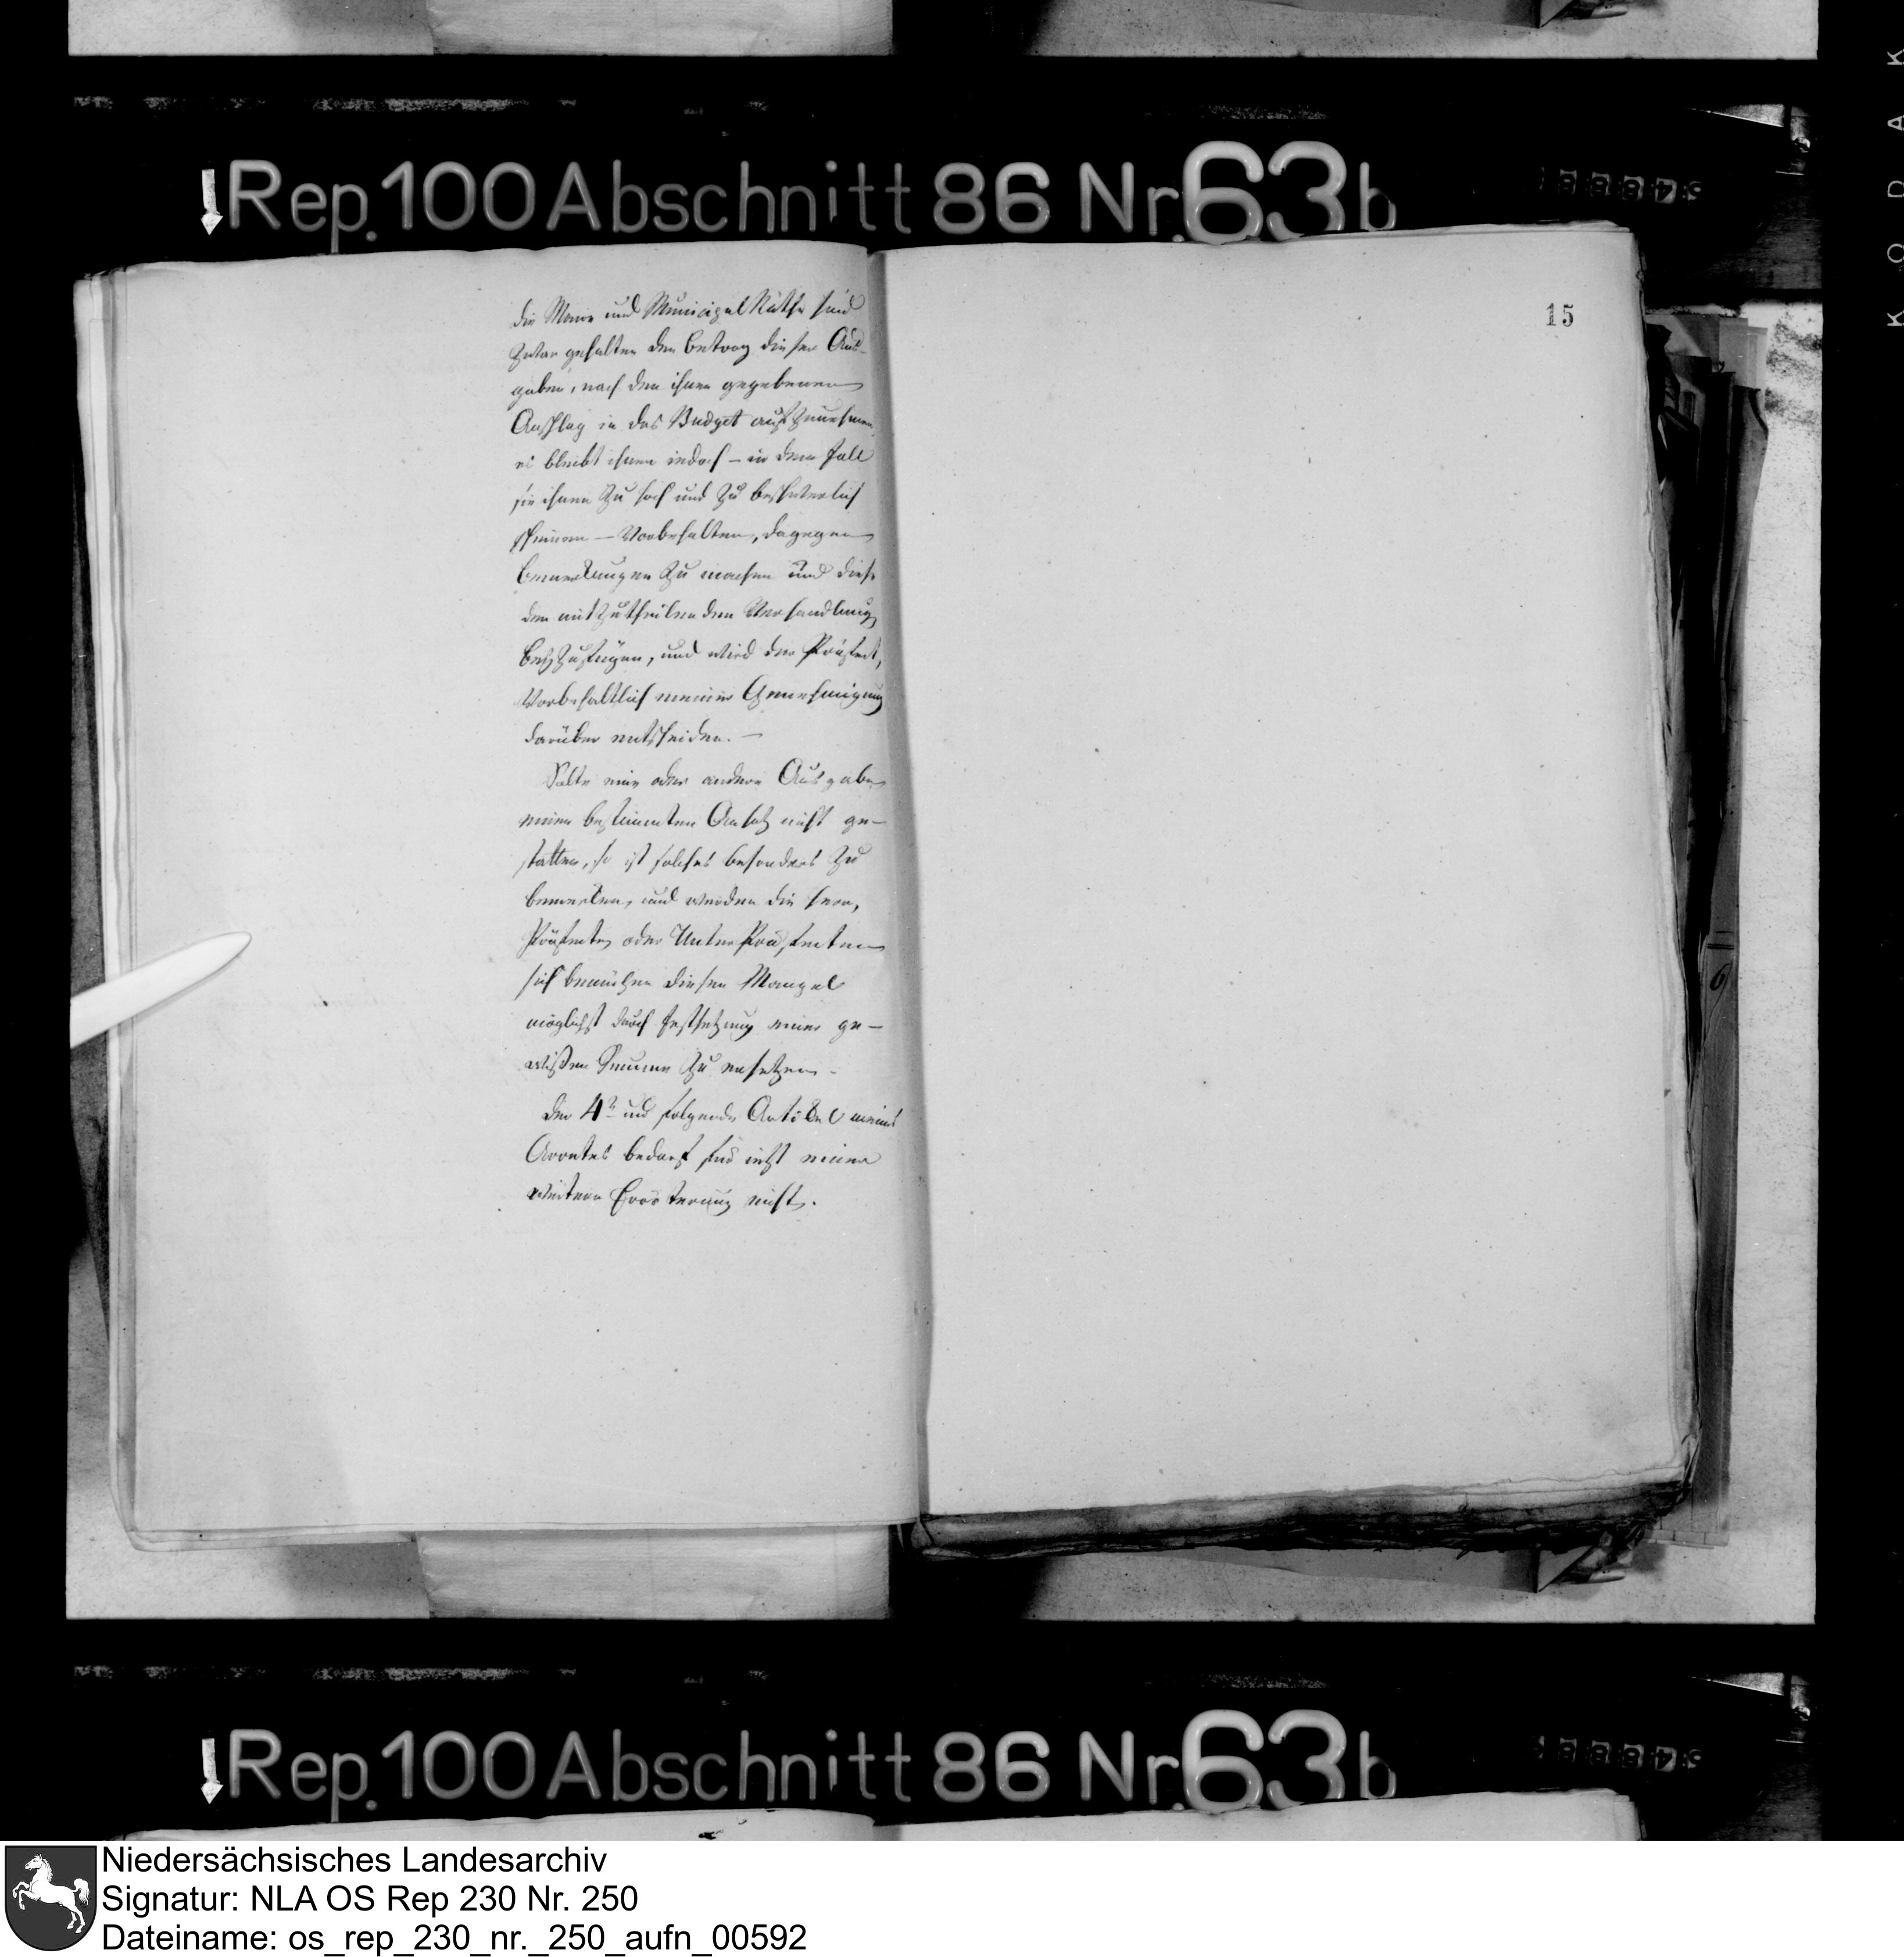 Rep. 100 Abschnitt 86 Nr. 63 b
15
die Maire und Municipal Räthe sind
zwar gehalten den Betrag dieser Aus-
gaben, nach den ihnen gegebenen
Anschlag in das Budget aufzunehmen,
es bleibt ihnen jedoch – in dem Fall
sie ihnen zu hoch und zu beschwerlich
schienen – Vorbehalten, dagegen
Bemerkungen zu machen und diese
den mitzutheilenden Verhandlung
beyzufügen, und wird der Präfect,
Vorbehaltlich meiner Genehmigung
darüber entscheiden. –
Solte eine oder andere Ausgabe
einen bestimmten Ansatz nicht ge-
statten, so ist solches besonders zu
bemerken, und werden die Herrn,
Präfecten oder Unter Präfecten
sich bemühen diesen Mangel
möglichst durch Festsetzung einer ge-
wißen Summe zu ersetzen.
Der 4te und folgende Artikel meines
Arretes bedarf für jetzt einer
weitern Erörterung nicht.
6
KODAK
Rep. 100 Abschnitt 86 Nr. 63 b
Niedersächsisches Landesarchiv
Signatur: NLA OS Rep 230 Nr. 250
Dateiname: os_rep_230_nr._250_aufn_00592